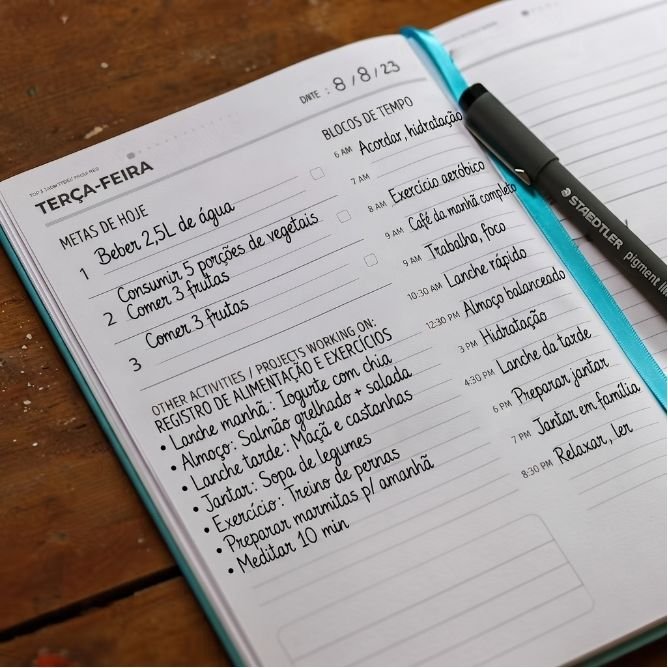 DATE : 8/8/23
TERÇA-FEIRA
METAS DE HOJE
1 Beber 2,5L de água
Consumir 5 porções de vegetais
2 Comer 3 frutas
3 Comer 3 frutas
OTHER ACTIVITIES / PROJECTS WORKING ON:
REGISTRO DE ALIMENTAÇÃO E EXERCÍCIOS
• Lanche manhã: Iogurte com chia
• Almoço: Salmão grelhado + salada
• Lanche tarde: Maçã e castanhas
• Jantar: Sopa de legumes
• Exercício: Treino de pernas
• Preparar marmitas p/ amanhã
• Meditar 10 min
BLOCOS DE TEMPO
6 AM Acordar, hidratação
7 AM
8 AM Exercício aeróbico
9 AM Café da manhã completo
9 AM Trabalho, foco
10:30 AM Lanche rápido
12:30 PM Almoço balanceado
3 PM Hidratação
4:30 PM Lanche da tarde
6 PM Preparar jantar
7 PM Jantar em família
8:30 PM Relaxar, ler
STAEDTLER pigment